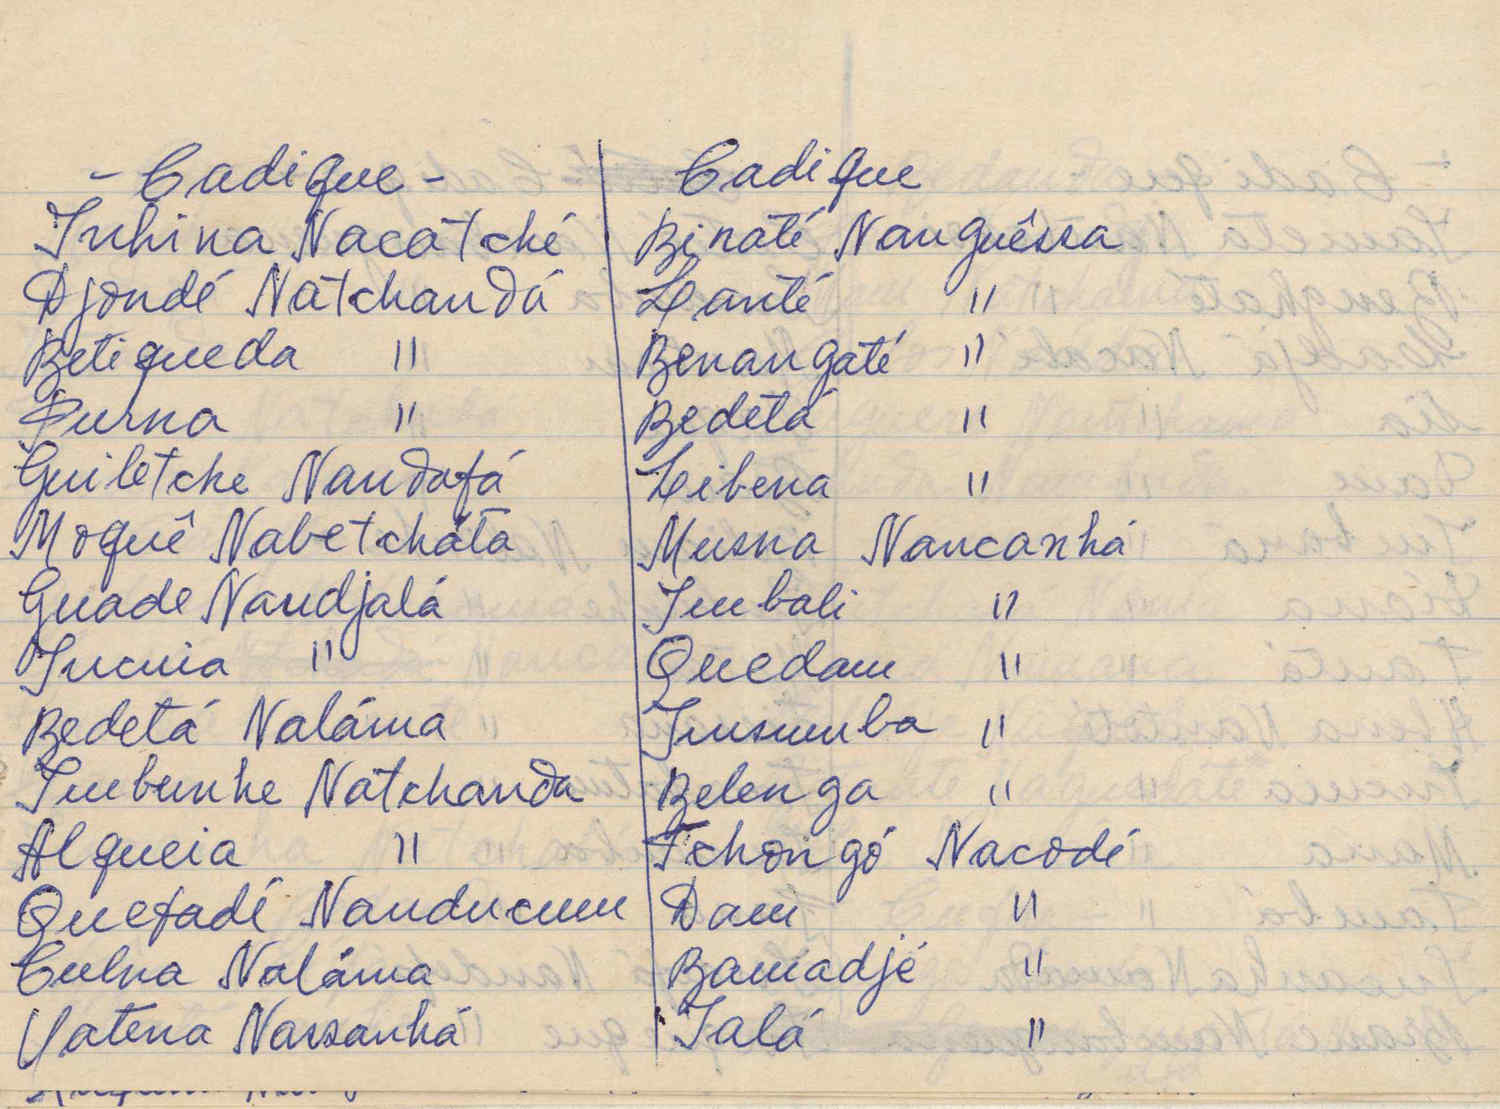 - Cadique -
Inhina Nacátché
Djondé Natchandá
Betiqueda "
Furna "
Guiletche Nandafá
Moquê Nabetcháta
Guade Nandjalá
Incuia "
Bedetá Naláma
Imbunhe Natchanda
Alqueia "
Quefadí Nanducum
Culna Naláma
Uatena Nassanhá
Cadique
Binaté Nanguêssa
Lanté "
Benangaté "
Bedetá "
Libena "
Musna Nancanhá
Imbali "
Quedam "
Insumba "
Belenga "
Tchongó Nacodé
Dam "
Bamadjé "
Ialá "